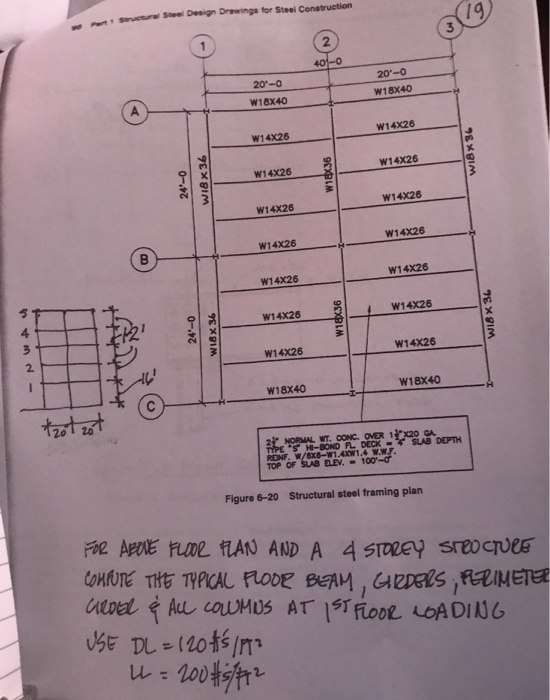 90 Part 1 Structural Steel Design Drawings for Steel Construction
19
1 2 3
40'-0
20'-0 20'-0
W18X40 W18X40
A
W14X26 W14X26
W14X26 W14X26
W14X26 W14X26
24'-0 W18X36 W18X36 W18X36
W14X26 W14X26
B
W14X26 W14X26
W14X26 W14X26
W14X26 W14X26
24'-0 W18X36 W18X36 W18X36
W18X40 W18X40
C
5
4
3
2
1
12'
16'
20' 20'
2½" NORMAL WT. CONC. OVER 1½"X20 GA.
TYPE "S" HI-BOND FL. DECK = 4" SLAB DEPTH
REINF. W/6X6-W1.4XW1.4 W.W.F.
TOP OF SLAB ELEV. = 100'-0"
Figure 6-20 Structural steel framing plan
FOR ABOVE FLOOR PLAN AND A 4 STOREY STRUCTURE
COMPUTE THE TYPICAL FLOOR BEAM, GIRDERS, PERIMETER
GIRDER & ALL COLUMNS AT 1ST FLOOR LOADING
USE DL = 120 #'s/FT²
LL = 200 #'s/FT²